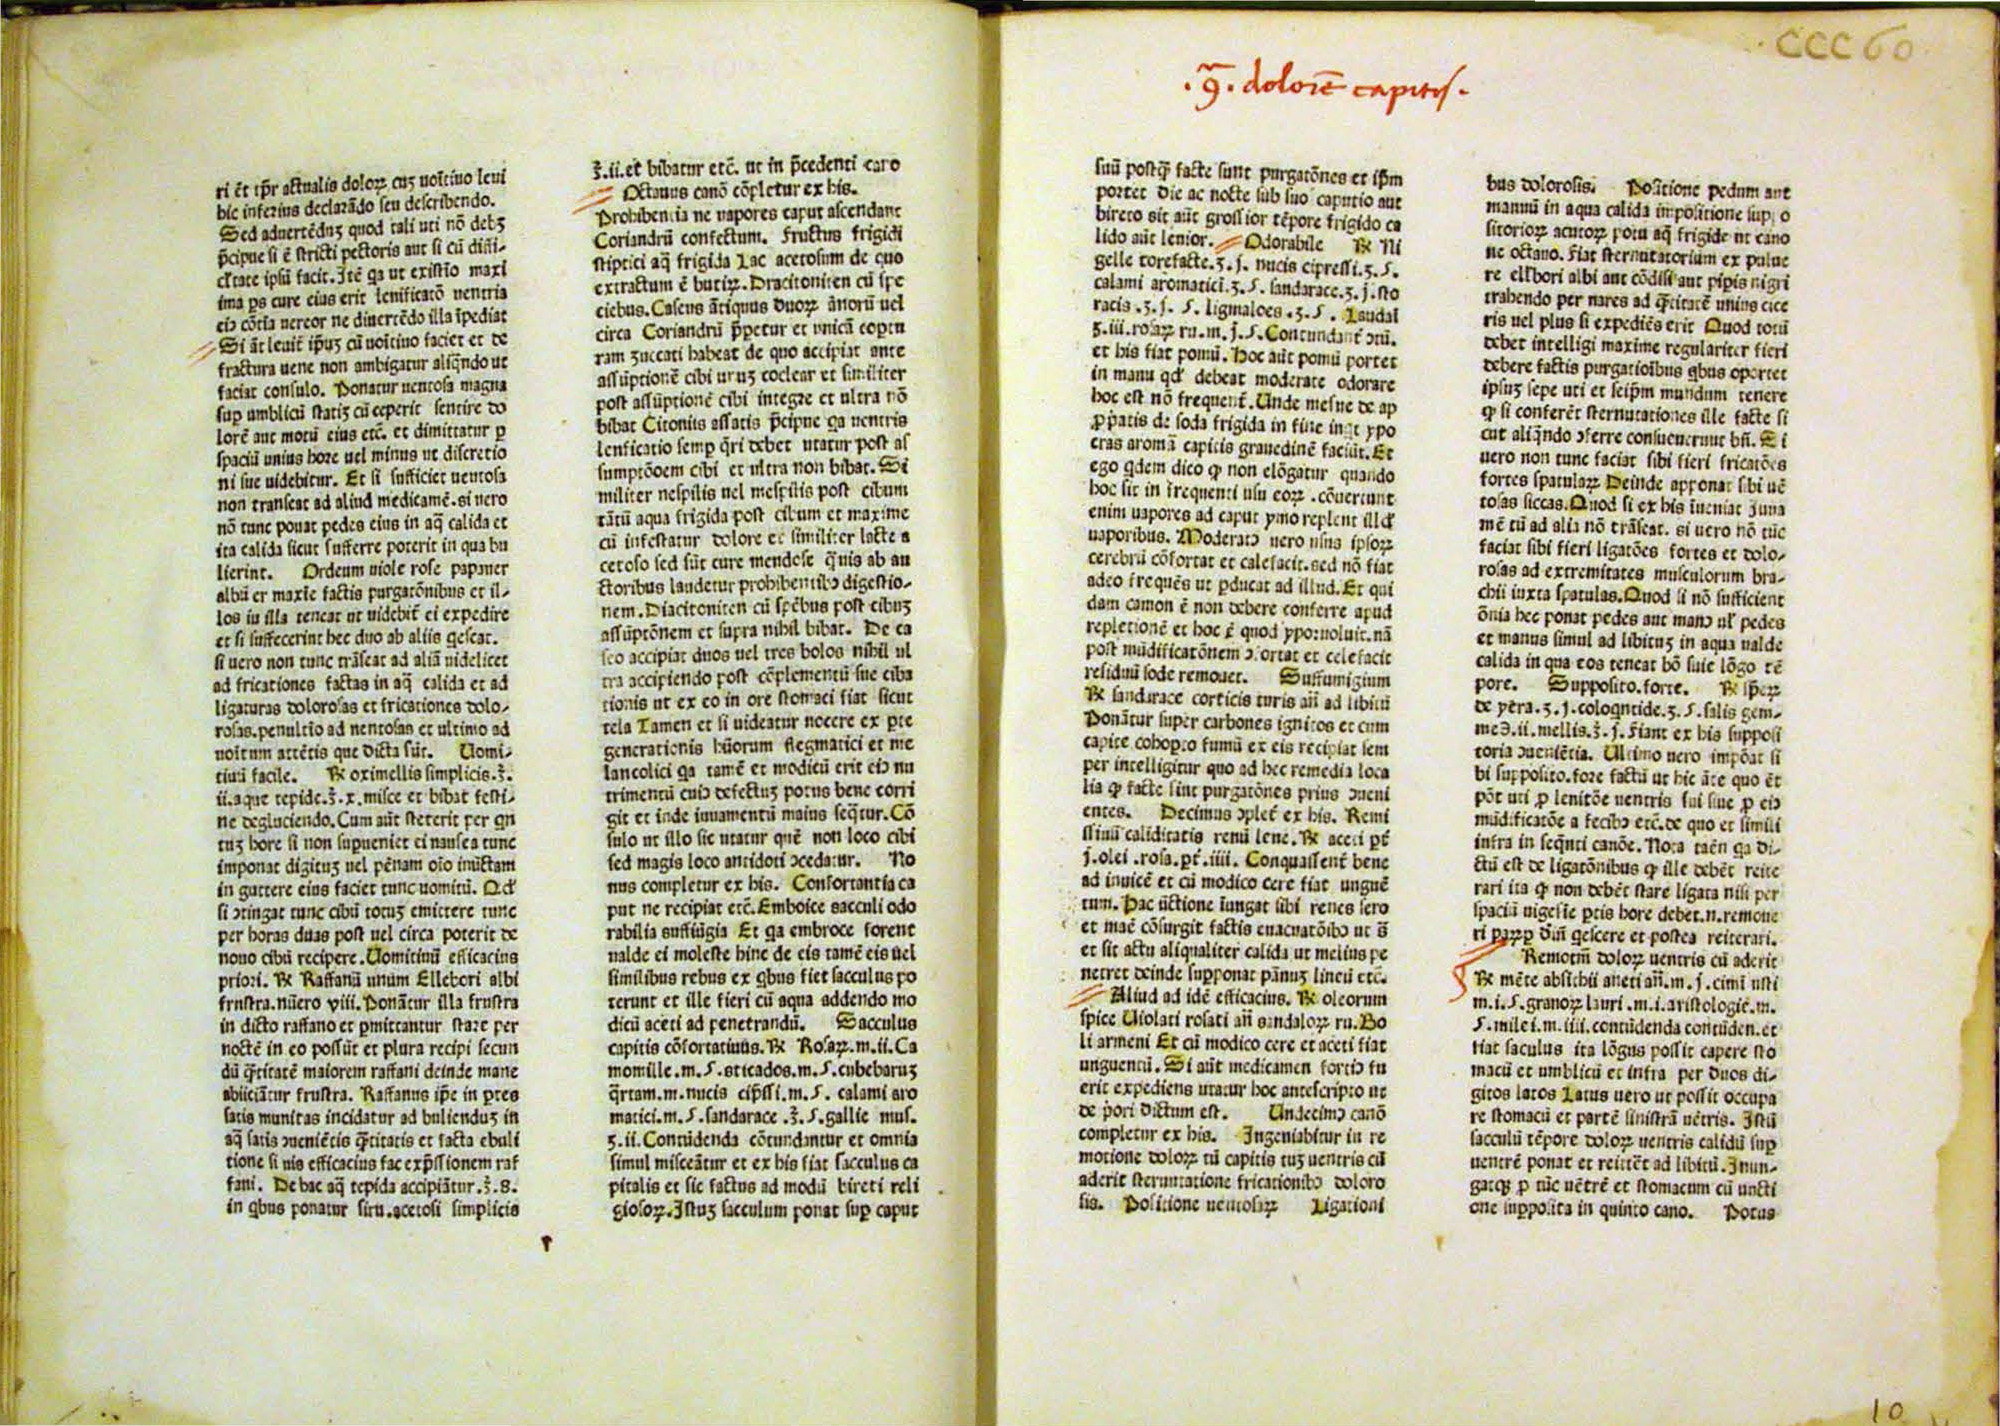 ri ēt tp̄r actualis doloꝝ cuꝫ uoītiuo leui
hic inferius declarādo seu describendo.
Sed aduertēduꝫ quod tali uti nō debꝫ
p̄cipue si ē stricti pectoris aut si cū diffi-
cl̄tate ipsū facit. Itē ꝗa ut existīo maxi
ima ps cure eius erit lenificatō uentris
eiꝰ cōtia uereor ne diuertēdo illa īpediat
Si āt leuit̄ ipuꝫ cū uoītiuo faciet et de
fractura uene non ambigatur aliqn̄do ut
faciat consulo. Ponatur uentosa magna
suꝑ umblicū statiꝫ cū ceperit sentire do
lorē aut motū eius etc̄. et dimittatur ꝑ
spaciū unius hore uel minus ut discretio
ni sue uidebitur. Et si sufficiet uentosa
non transeat ad aliud medicamē. si uero
nō tunc ponat pedes eius in aq̄ calida et
ita calida sicut sufferre poterit in qua bu
lierint. Ordeum uiole rose papauer
albū et maxīe factis purgatōnibus et il-
los in illa teneat ut uidebit̄ ei expedire
et si suffecerint hec duo ab aliis ꝗescat.
si uero non tunc trāseat ad aliā uidelicet
ad fricationes factas in aq̄ calida et ad
ligaturas dolorosas et fricationes dolo-
rosas. penultīo ad uentosas et ultimo ad
uoītum attētis que dicta sūt. Uomi-
tiuū facile. ℞ oximellis simplicis. ℥.
ii. aque tepide. ℥. x. misce et bibat festi-
ne degluciendo. Cum aūt steterit per qn̄
tuꝫ hore si non supueniet ei nausea tunc
imponat digituꝫ uel pēnam oīo inūctam
in gutture eius faciet tunc uomitū. Qđ
si ↄtingat tunc cibū totuꝫ emittere tunc
per horas duas post uel circa poterit de
nouo cibū recipere. Uomitiuū efficacius
priori. ℞ Raffanū unum Ellebori albi
frustra. nūero viii. Ponātur illa frustra
in dicto raffano et ꝑmittantur stare per
noctē in eo possūt et plura recipi secun
dū q̄titatē maiorem raffani deinde mane
abiiciātur frustra. Raffanus ip̄e in ptes
satis munitas incidatur ad bulienduꝫ in
aq̄ satis ↄueniētis q̄titatis et facta ebuli
tione si uis efficacius fac exp̄ssionem raf
fani. De hac aq̄ tepida accipiātur. ℥. 8.
in ꝗbus ponatur siru. acetosi simplicis
℥. ii. et bibatur etc̄. ut in p̄cedenti caro
Octauus canō cōpletur ex his.
Prohibentia ne uapores caput ascendant
Coriandrū confectum. Fructus frigidi
stiptici aq̄ frigida Lac acetosum de quo
extractum ē butiꝝ. Dracitoniten cū spe
ciebus. Caseus ātiquus duoꝝ ānorū uel
circa Coriandrū p̄petur et unicā coptu
ram zuccati habeat de quo accipiat ante
assūptionē cibi unuꝫ coclear et similiter
post assūptionē cibi integre et ultra nō
bibat Citoniis assatis p̄cipue ꝗa uentris
lenficatio semꝑ q̄ri debet utatur post as
sumptōem cibi et ultra non bibat. Si
militer nespilis uel mespilis post cibum
tātū aqua frigida post cibum et maxime
cū infestatur dolore et similiter lacte a
cetoso sed sūt cure mendose q̄uis ab au
ctoribus laudetur prohibentibꝰ digestio-
nem. Diacitoniten cū spēbus post cibuꝫ
assūptōnem et supra nihil bibat. De ca
seo accipiat duos uel tres bolos nihil ul
tra accipiendo post cōplementū sue ciba
tionis ut ex eo in ore stomaci fiat sicut
tela Tamen et si uideatur nocere ex pte
generationis hūorum flegmatici et me
lancolici ꝗa tamē et modicū erit eiꝰ nu
trimentū cuiꝰ defectuꝫ potus bene corri
git et inde iuuamentū maius seq̄tur. Cō
sulo ut illo sic utatur quē non loco cibi
sed magis loco antidoti ↄcedatur. No
nus completur ex his. Confortantia ca
put ne recipiat etc̄. Emboice sacculi odo
rabilia suffiūgia Et ꝗa embroce forent
ualde ei moleste hinc de eis tamē eis uel
similibus rebus ex ꝗbus fiet sacculus po
terunt et ille fieri cū aqua addendo mo
dicū aceti ad penetrandū. Sacculus
capitis cōfortatiuus. ℞ Rosaꝝ. m. ii. Ca
momille. m. ẞ. sticados. m. ẞ. cubebaruꝫ
q̄rtam. m. nucis cip̄ssi. m. ẞ. calami aro
matici. m. ẞ. sandarace. ℥. ẞ. gallie mus.
ʒ. ii. Contūdenda cōtundantur et omnia
simul misceātur et ex his fiat sacculus ca
pitalis et sic factus ad modū bireti reli
giosoꝝ. Istuꝫ sacculum ponat suꝑ caput
CCC60
. ꝯ̃. dolorē capitis.
suū postq̄ facte sunt purgatōnes et ip̄m
portet die ac nocte sub suo caputio aut
bireto sit aūt grossior tēpore frigido ca
lido aūt lenior. Odorabile ℞ Ni
gelle torefacte. ʒ. j. nucis cipressi. ʒ. ẞ.
calami aromatici. ʒ. ẞ. sandarace. ʒ. j. sto
racis. ʒ. j. ẞ. lignialoes. ʒ. ẞ. Laudal
ʒ. iii. rosaꝝ ru. m. j. ẞ. Contundant̄ ↄtū.
et his fiat pomū. Hoc aūt pomū portet
in manu qđ debeat moderate odorare
hoc est nō frequent̄. Unde mesue de ap
ꝓp̄atis de soda frigida in fine inqt ypo
cras aromā capitis grauedinē faciūt. Et
ego qdem dico ꝙ non elōgatur quando
hoc sit in frequenti usu eoꝝ. cōuertunt
enim uapores ad caput ymo replent illđ
uaporibus. Moderatꝰ uero usus ipsoꝝ
cerebrū cōfortat et calefacit. sed nō fiat
adeo frequēs ut ꝑducat ad illud. Et qui
dam canon ē non debere conferre apud
repletionē et hoc ē quod ypo: uoluit. nā
post mūdificatōnem ↄfortat et celefacit
residuū sode remouet. Suffumigium
℞ sandarace corticis turis añ ad libitū
Ponātur super carbones ignitos et cum
capite cohopto fumū ex eis recipiat sem
per intelligitur quo ad hec remedia loca
lia ꝙ facte sint purgatōnes prius ↄueni
entes. Decimus ↄplet̄ ex his. Remi
ssiuū caliditatis renū lene. ℞ aceti pt̄
j. olei. rosa. pt̄. iiii. Conquassent̄ bene
ad inuicē et cū modico cere fiat unguē
tum. Hac ūctione īungat sibi renes sero
et mae cōsurgit factis euacuatōibꝰ ut s̄
et sit actu aliqualiter calida ut melius pe
netret deinde supponat pānuꝫ lineū etc̄.
Aliud ad idē efficacius. ℞ oleorum
spice Uiolati rosati añ sandaloꝝ ru. Bo
li armeni Et cū modico cere et aceti fiat
unguentū. Si aūt medicamen fortiꝰ fu
erit expediens utatur hoc antescripto ut
de pori dictum est. Undecimꝰ canō
completur ex his. Ingeniabitur in re
motione doloꝝ tū capitis tuꝫ uentris cū
aderit sternutatione fricationibꝰ doloro
sis. Positione uentosaꝝ Ligationi
bus dolorosis. Positione pedum aut
manuū in aqua calida impositione sup o
sitorioꝝ acutoꝝ potu aq̄ frigide ut cano
ne octauo. Fiat sternutatorium ex pulue
re ellebori albi aut cōdisi aut pipis nigri
trahendo per nares ad q̄titatē unius cice
ris uel plus si expediēs erit Quod totū
debet intelligi maxime regulariter fieri
debere factis purgatioībus ꝗbus oportet
ipsuꝫ sepe uti et seip̄m mundum tenere
ꝙ si conferēt sternutationes ille facte si
cut aliqn̄do ↄferre consueuerunt bn̄. Si
uero non tunc faciat sibi fieri fricatōes
fortes spatulaꝝ Deinde apponat sibi uē
tosas siccas. Quod si ex his īueniat iuua
mē tū ad alia nō trāseat. si uero nō tūc
faciat sibi fieri ligatōes fortes et dolo-
rosas ad extremitates musculorum bra-
chii iuxta spatulas. Quod si nō sufficient
ōnia hec ponat pedes aut manꝰ ul̄ pedes
et manus simul ad libituꝫ in aqua ualde
calida in qua eos teneat bō suie lōgo tē
pore. Supposito. forte. ℞ sp̄eꝝ
de yēra. ʒ. j. coloqntide. ʒ. ẞ. salis gem-
me ℈. ii. mellis. ℥. j. Fiant ex his supposi
toria ↄueniētia. Ultimo uero impōat si
bi supposito. fore factū ut hic āte quo ēt
pōt uti ꝓ lenitōe uentris sui siue ꝓ eiꝰ
mūdificatōe a fecibꝰ etc̄. de quo et simili
infra in seq̄nti canōe. Nota taēn ꝗa di-
ctū est de ligatōnibus ꝙ ille debēt reite
rari ita ꝙ non debēt stare ligata nisi per
spaciū uigesīe ptis hore debet. n. remoue
ri parꝑ dim̄ ꝗescere et postea reiterari.
Remotiū doloꝝ uentris cū aderit
℞ mēte absīthii aneti añ. m. j. cimi usti
m. i. ẞ. granoꝝ lauri. m. i. aristologie. m.
ẞ. milei. m. iiii. contūdenda contūden. et
fiat saculus ita lōgus possit capere sto
macū et umblicū et infra per duos di-
gitos latos Latus uero ut possit occupa
re stomacū et partē sinistrā uētris. Istū
sacculū tēpore doloꝝ uentris calidū suꝑ
uentrē ponat et reitēt ad libitū. Inun-
gatqꝫ ꝑ tūc uētrē et stomacum cū uncti
one supposita in quinto cano. Potus
10